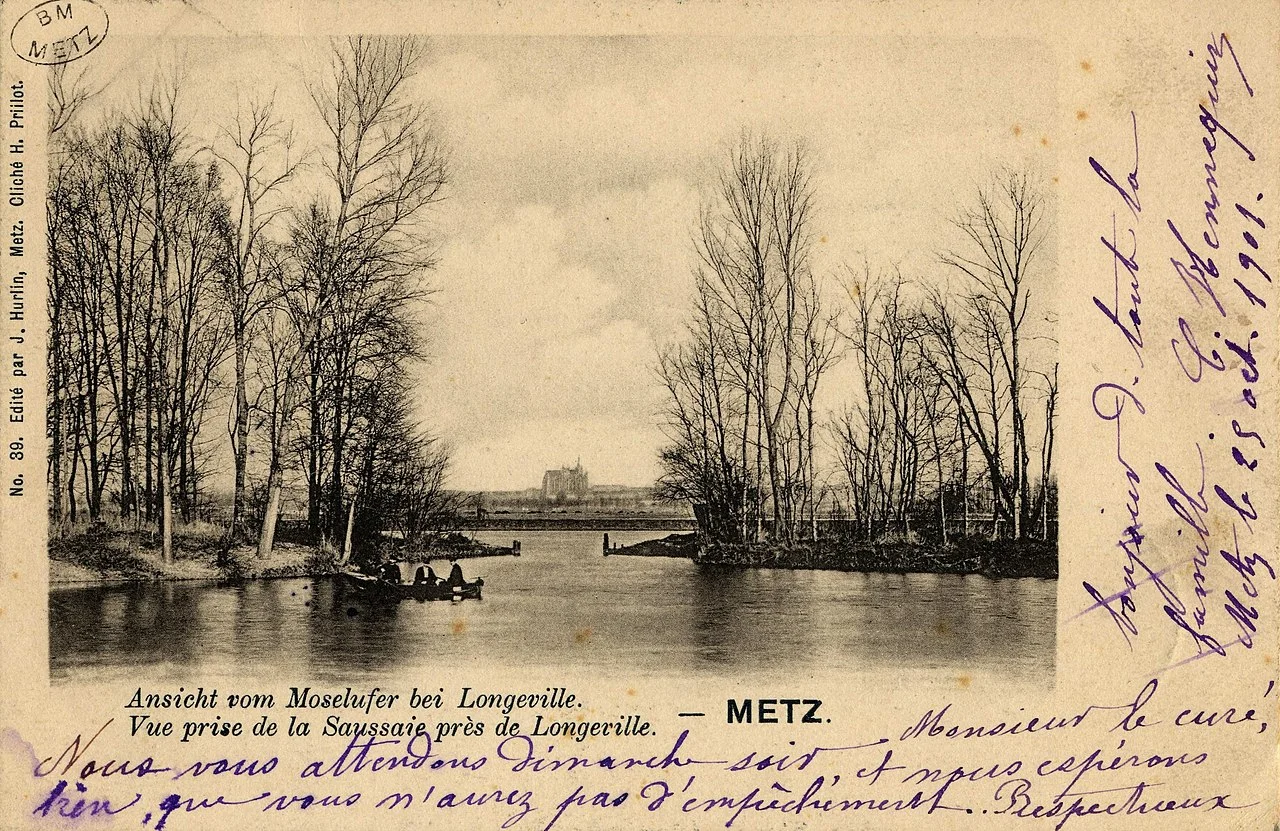 BM
METZ
No. 39. Edité par J. Hurlin, Metz. Cliché H. Prillot.
Ansicht vom Moselufer bei Longeville.
Vue prise de la Saussaie près de Longeville.
— METZ.
Monsieur le curé,
Nous vous attendons dimanche soir, et nous espérons
bien, que vous n'aurez pas d'empêchement. Respectueux
bonjour d. tout la
famille.
C. Hennequin
Metz le 25 oct. 1901.